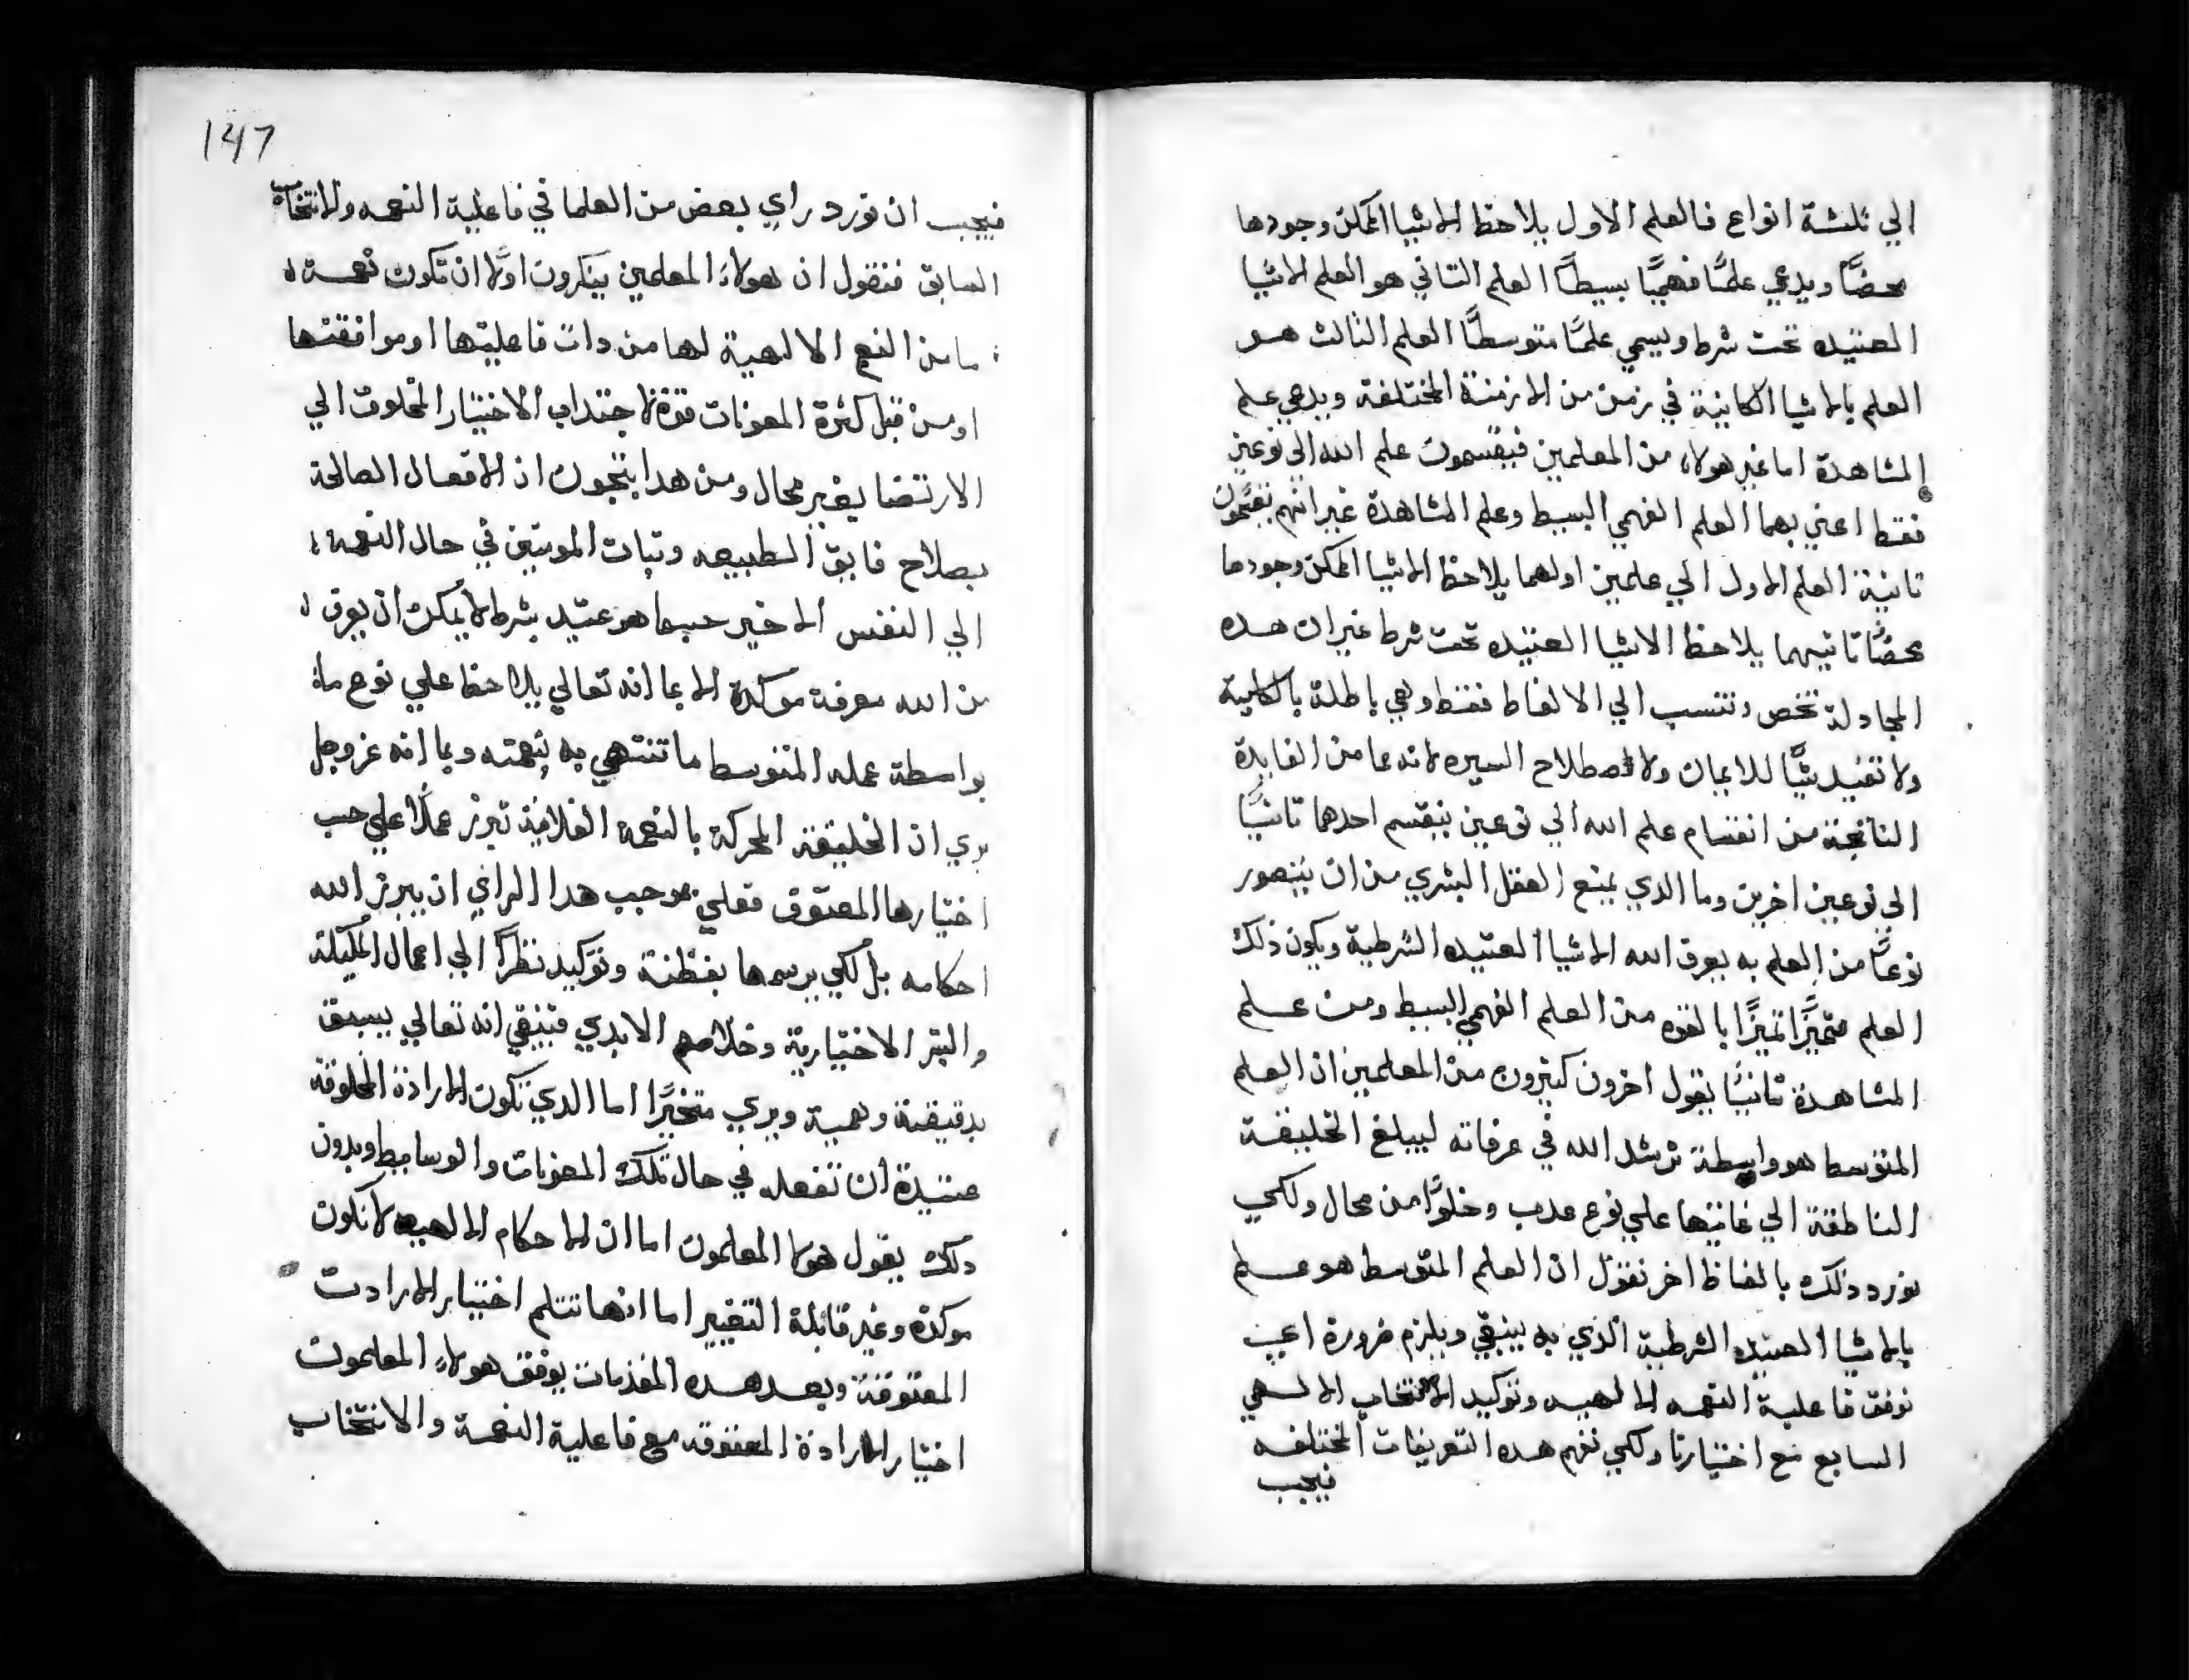 الي ثلثة انواع فالعلم الاول يلاحظ الاشيا الممكن وجودها
محضًا ويدعي علمًا فهميًا بسيطًا العلم التاني هو العلم الاشيا
العتيده تحت شرط ويسمي علمًا متوسطًا العلم الثالث هو
العلم بالاشيا الكاينة في زمن من الازمنة المختلفة ويدعي علم
المشاهدة اما غير هولاء من المعلمين فيقسمون علم الله الي نوعين
فقط اعني بهما العلم الفهمي البسيط وعلم المشاهدة غير انهم يقسمون
تانية العلم الاول الي علمين اولهما يلاحظ الاشيا الممكن وجودها
محضًا تانيهما يلاحظ الاشيا العتيده تحت شرط غير ان هده
المجادلة تخص وتنتسب الي الالفاظ فقط وهي باطلة بالكلية
ولا تفيد شيًا للايمان ولا لاصطلاح السيره لانه ما من الفايدة
الناتجة من انقسام علم الله الي نوعين ينقسم احدهما تانيًا
الي نوعين اخرين وما الدي يمنع العقل البشري من ان يتصور
نوعًا من العلم به يعرف الله الاشيا العتيده الشرطية ويكون ذلك
العلم متميزًا تميزًا بالقوه من العلم الفهمي البسيط ومن علم
المشاهدة تانيًا يقول اخرون كتيرون من المعلمين ان العلم
المتوسط هو واسطة ترشد الله في عرفاته ليبلغ الخليقة
الناطقة الي غايتها علي نوع عدب وخلوًا من محال ولكي
نورد دلك بالفاظ اخر نقول ان العلم المتوسط هو علم
بالاشيا العتيده الشرطية الذي به ينبغي ويلزم ضرورة اعني
توفق فاعلية النعمه الالهيه وتوكيد الانتخاب الالهي
السابع مع اختيارنا ولكي نفهم هده التعريفات المختلفه
فيجب
147
فيجب ان نورد راي بعض من العلما في فاعلية النعمه والانتخاب
السابق فنقول ان هولاء المعلمين ينكرون اولًا ان تكون نعمة
ما من النعم الالهية لها من دات فاعليتها او موافقتها
او من قبل كثرة المعونات قوة لاجتداب الاختيار المخلوق الي
الارتضا بغير محال ومن هدا ينتجون ان الافعال الصالحة
بصلاح فايق الطبيعه وتبات الموتين في حال النعمة
الي النفس الاخير حسبما هو عتيد بشرط لا يمكن ان يعرف
من الله معرفة موكدة الا بما انه تعالي يلاحظ علي نوع ما
بواسطة عمله المتوسط ما تنتهي به نعمته وبما انه عز وجل
يري ان الخليقة المحركة بالنعمة الفلانية تبرز عملًا علي حسب
اختيارها المعتوق فعلي موجب هدا الراي ان يبرز الله
احكامه بل لكي يرسمها بفطنة وتوكيد نظرًا الي اعمال
والبر الاختيارية وخلاصهم الابدي فينبغي انه تعالي يسبق
بدقيقة وهمية ويري متخيرًا اما الدي تكون الارادة المخلوقة
عتيدة ان تفعله في حال تلك المعونات والوسايط وبدون
دلك يقول هولا المعلمون اما ان الاحكام الالهيه لا تكون
موكده وغير قابلة التغيير اما انها تتلم اختيار الارادت
المعتوقة وبعد هده المقدمات يوفق هولاء المعلمون
اختيار الارادة المعتوقه مع فاعلية النعمة والانتخاب